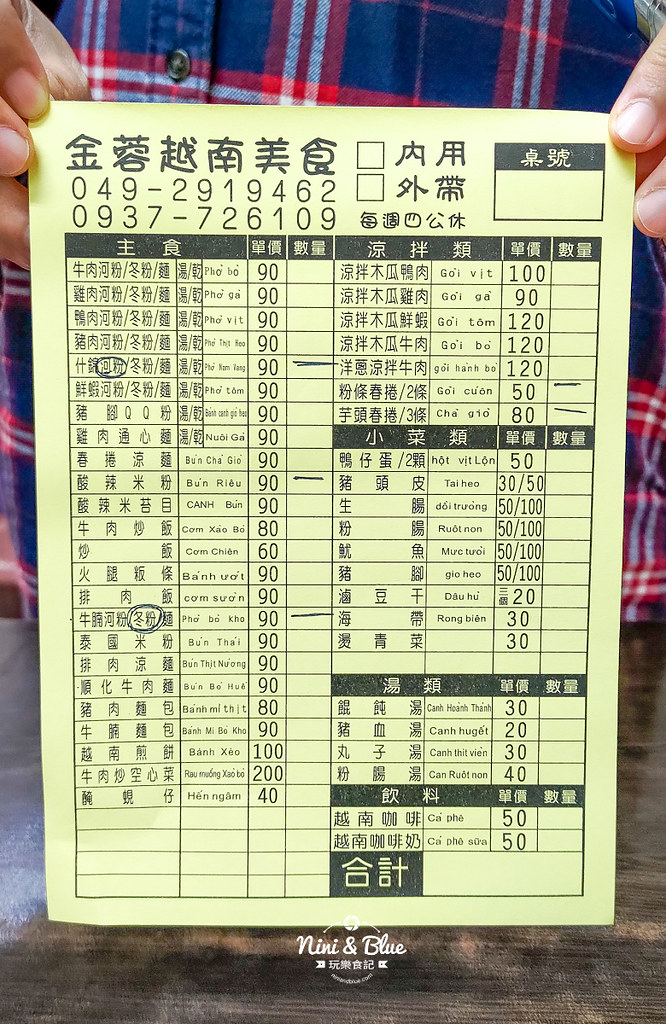 金蓉越南美食 □ 內用 桌號
049-2919462 □ 外帶
0937-726109 每週四公休
主食 單價 數量
牛肉河粉/冬粉/麵 湯/乾 Phở bò 90
雞肉河粉/冬粉/麵 湯/乾 Phở gà 90
鴨肉河粉/冬粉/麵 湯/乾 Phở vịt 90
豬肉河粉/冬粉/麵 湯/乾 Phở Thịt Heo 90
什錦河粉/冬粉/麵 湯/乾 Phở Nam Vang 90 一
鮮蝦河粉/冬粉/麵 湯/乾 Phở tôm 90
豬腳QQ粉 湯/乾 Bánh canh giò heo 90
雞肉通心麵 湯/乾 Nuôi Gà 90
春捲涼麵 Bún Chả Giò 90
酸辣米粉 Bún Riêu 90 一
酸辣米苔目 CANH Bún 90
牛肉炒飯 Cơm Xào Bò 80
炒飯 Cơm Chiên 60
火腿粄條 Bánh ướt 90
排肉飯 cơm sườn 90
牛腩河粉/冬粉/麵 Phở bò Kho 90 一
泰國米粉 Bún Thái 90
排肉涼麵 Bún Thịt Nướng 90
順化牛肉麵 Bún Bò Huế 90
豬肉麵包 Bánh mì thịt 80
牛腩麵包 Bánh Mì Bò Kho 90
越南煎餅 Bánh Xèo 100
牛肉炒空心菜 Rau muống Xào bò 200
醃蜆仔 Hến ngâm 40
涼拌類 單價 數量
涼拌木瓜鴨肉 Gỏi vịt 100
涼拌木瓜雞肉 Gỏi gà 90
涼拌木瓜鮮蝦 Gỏi tôm 120
涼拌木瓜牛肉 Gỏi bò 120
洋蔥涼拌牛肉 gỏi hành bò 120
粉條春捲/2條 Gỏi cuốn 50 一
芋頭春捲/3條 Chả giò 80 一
小菜類 單價 數量
鴨仔蛋/2顆 hột vịt Lộn 50
豬頭皮 Tai heo 30/50
生腸 dồi trường 50/100
粉腸 Ruột non 50/100
魷魚 Mực tươi 50/100
豬腳 giò heo 50/100
滷豆干 Dâu hủ 三個20
海帶 Rong biên 30
燙青菜 30
湯類 單價 數量
餛飩湯 Canh Hoành Thánh 30
豬血湯 Canh huyết 20
丸子湯 Canh thịt viên 30
粉腸湯 Can Ruột non 40
飲料 單價 數量
越南咖啡 Cà phê 50
越南咖啡奶 Cà phê sữa 50
合計
Nini & Blue
玩樂食記
niniandblue.com